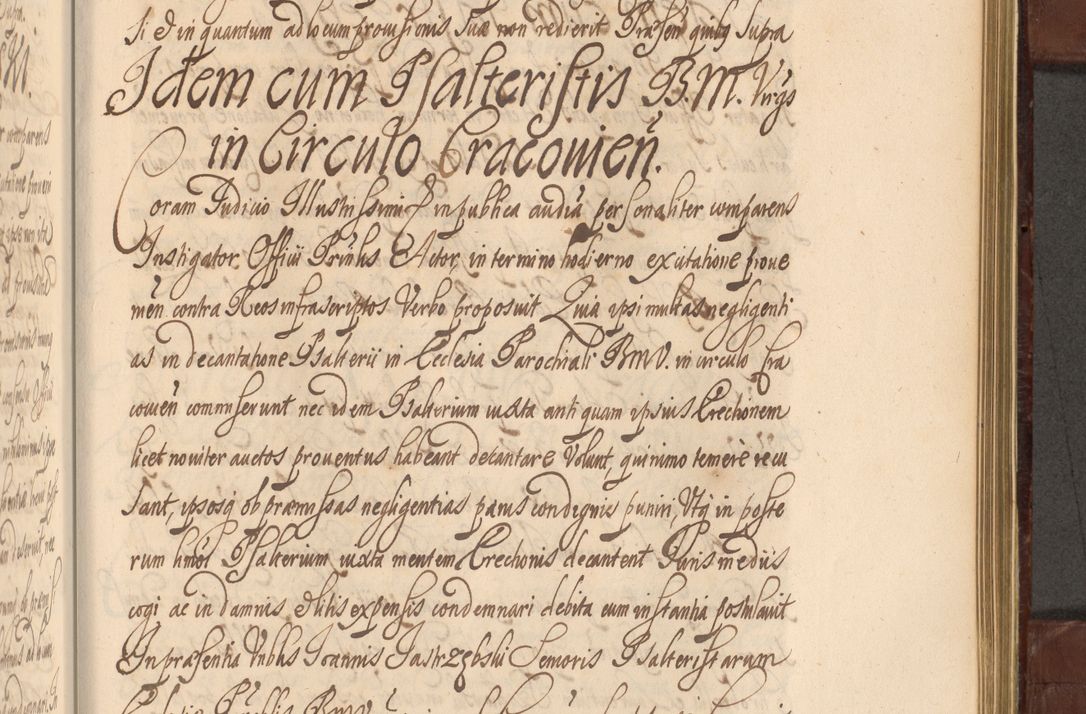 si & in quantum ad locum provisionis suæ non redierit Præsen quibq supra
Idem cum Psalteristis B.M. Virgs
in Circulo Cracovień.
Coram Judicio Illustrissimi & in publica audiã personaliter comparens
Instigator Officii Prinlis Actor, in termino hodierno ex citatione prove
mén contra Reos infrascriptos Verbo proposuit Quia ipsi multas negligenti
as in decantatione Psalterii in Ecclesia Parochiali BMV. in circulo Cra
covień commiserunt nec idem Psalterium iuxta antiquam ipsius Erectionem
licet noviter auctos proventus habeant decantare Volunt, quinimo temerè recu
sant, ipsosq ob præmissas negligentias pænis condignis puniri, Utq in poste
rum hmõi Psalterium iuxta mentem Erectionis decantent Juris mediis
cogi ac in damnis, & litis expensis condemnari debita cum instantia postulavit
In præsentia Vnblis Joannis Jastrzębski Senioris Psalteristarum